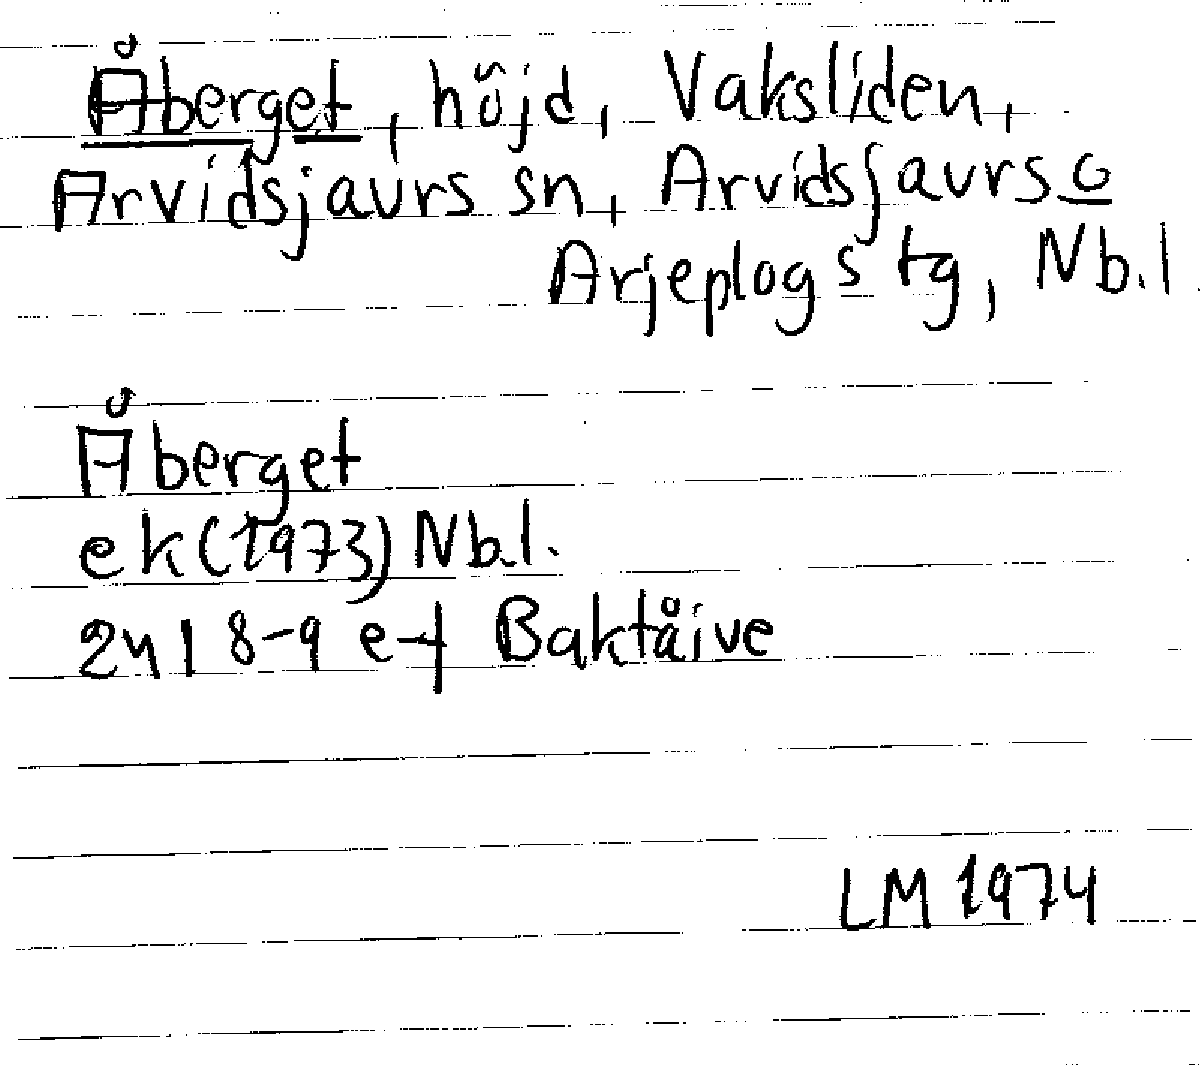 Åberget, höjd, Vaksliden,
Arvidsjaurs sn, Arvidsjaurs o
Arjeplogs tg, Nb.l.
Åberget
ek (1973) Nb.l.
24I 8-9 e-f Baktåive
LM 1974